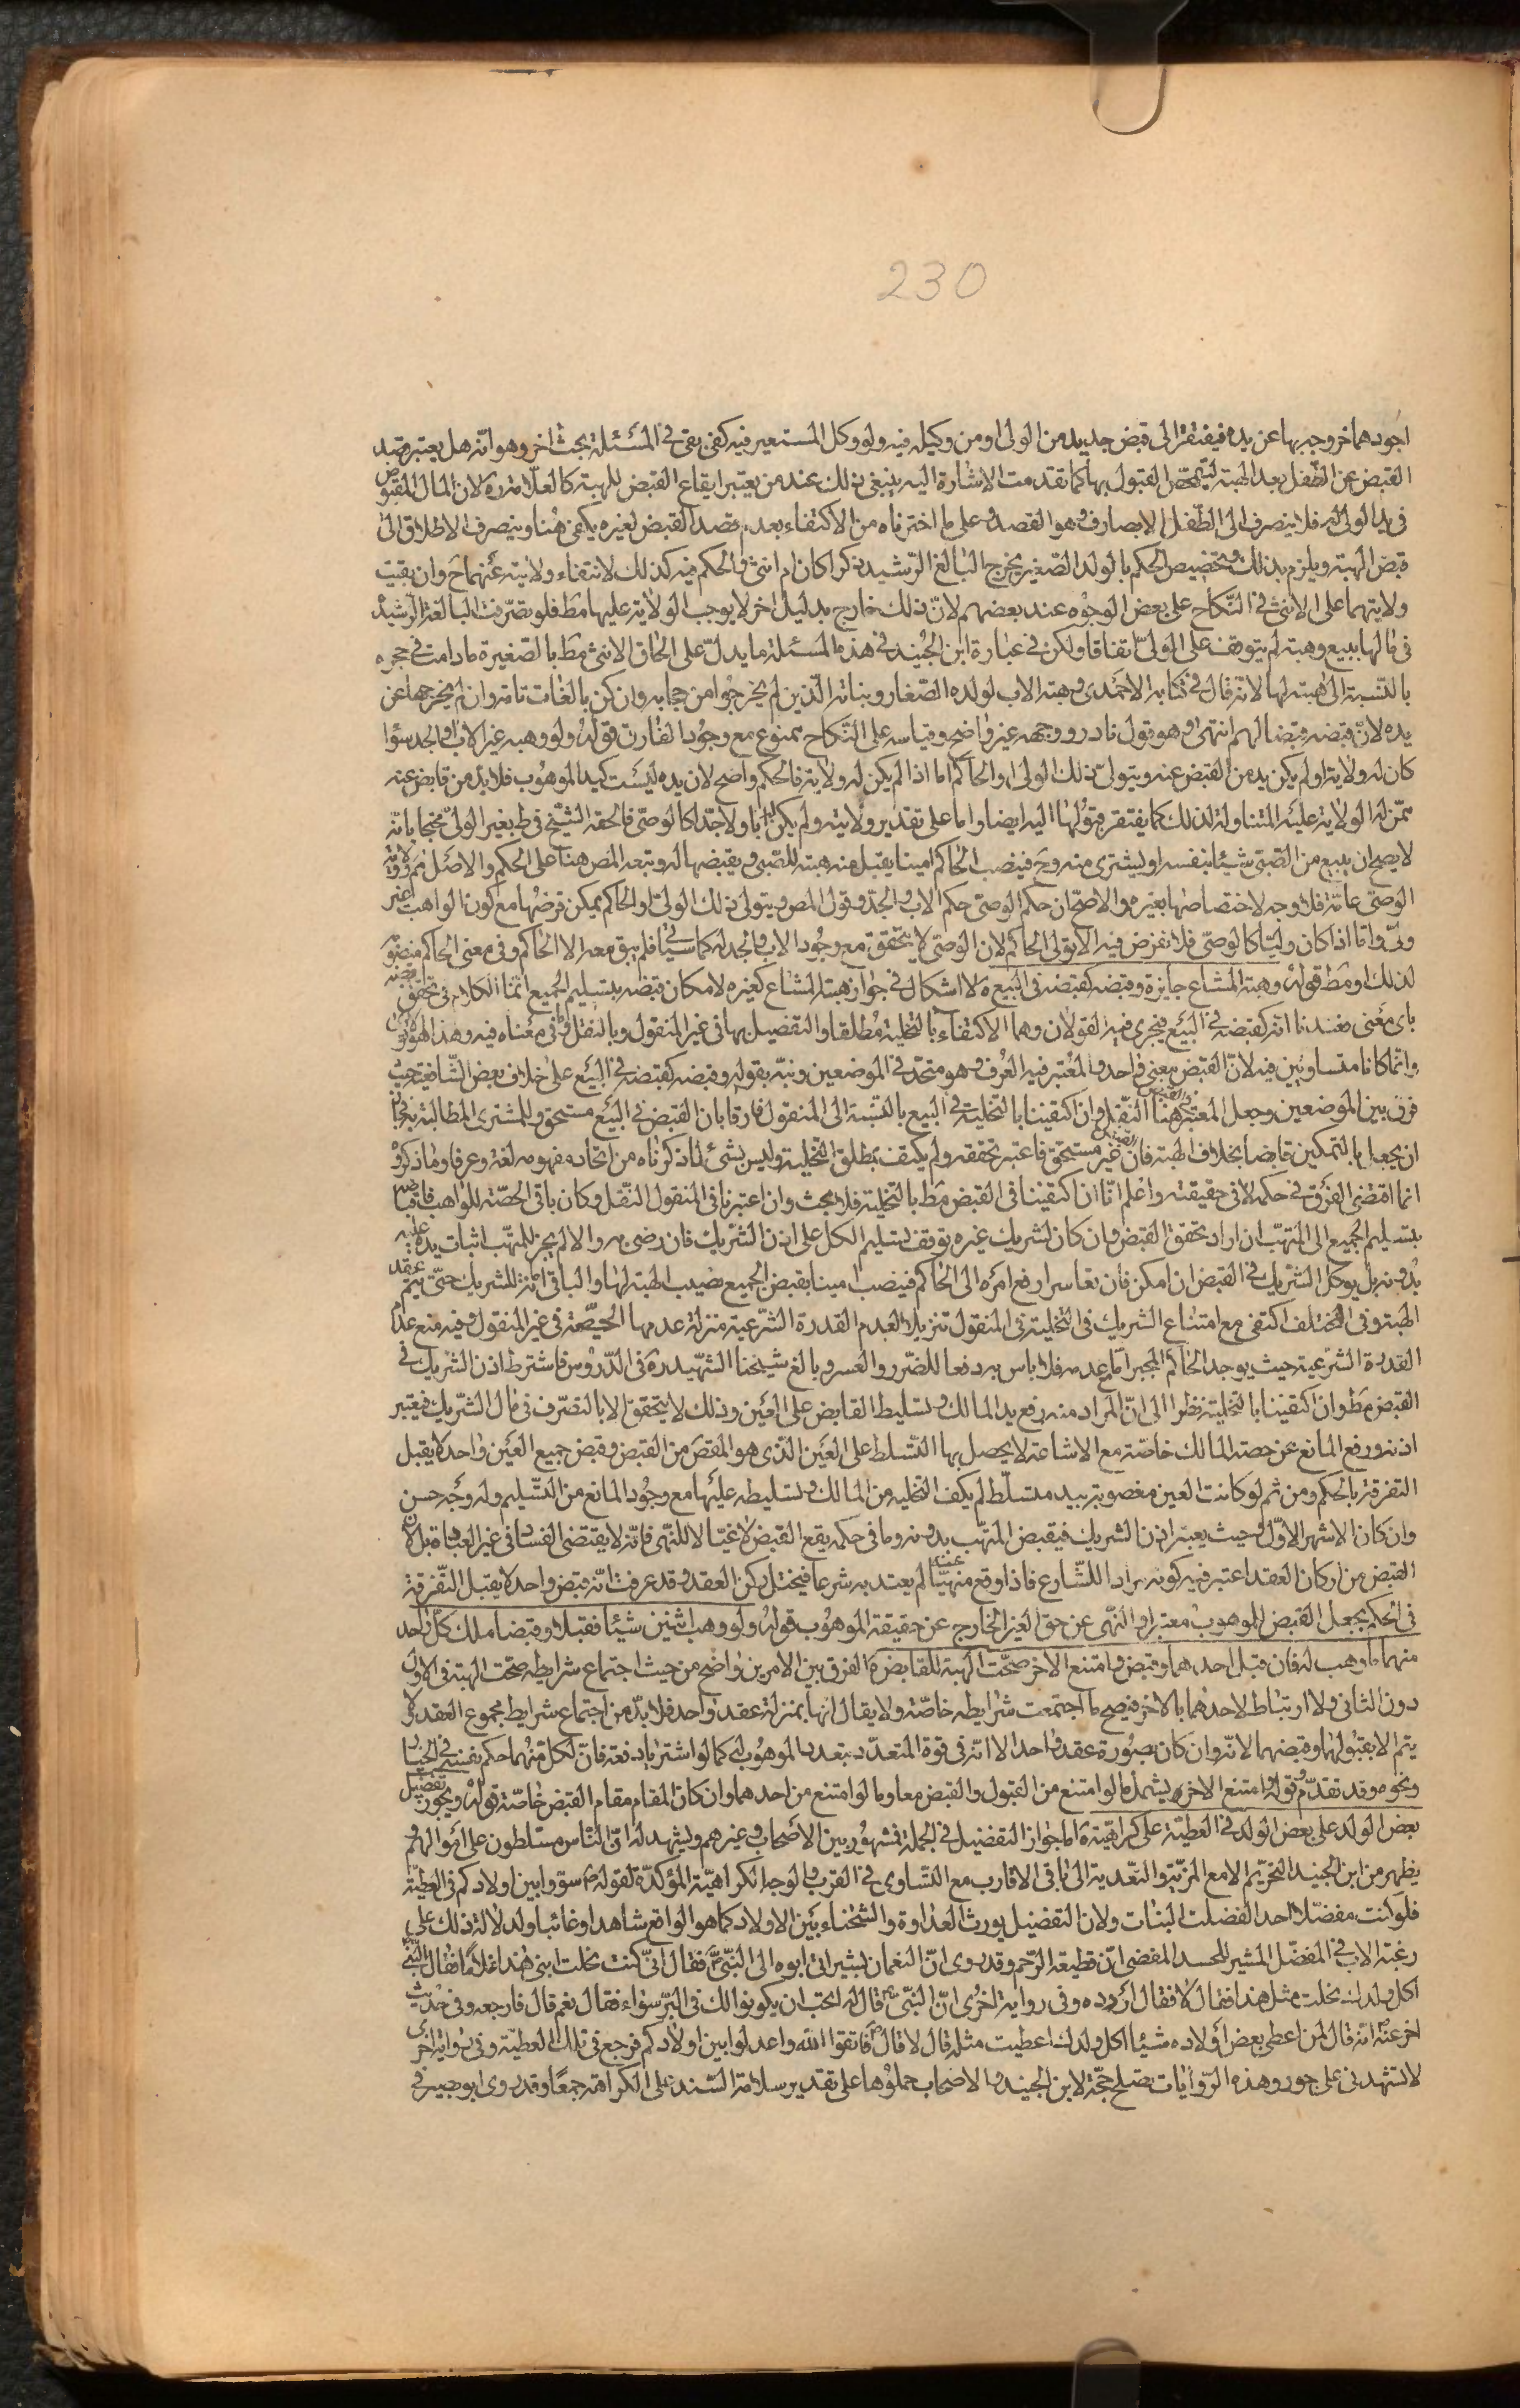 230
اجودهما خروجه بها عن يده فيفتقر الى قبض جديد من الولى او من وكيله فيه ولو وكل المستعير فيه كفى بقى فى المسئلة بحث اخر وهو انه هل يعتبر قصد
القبض عن الطفل بعد الهبة ليتمحض القبول بها كما تقدمت الاشارة اليه ينبغى ذلك عند من يعتبر ايقاع القبض للهبة كالعلامة ره لان المال المقبوض
فى يد الولى له فلا ينصرف الى الطفل الا بصارف وهو القصد وعلى ما اخترناه من الاكتفاء بعدم قصد القبض لغيره يكفى هنا وينصرف الاطلاق الى
قبض الهبة ويلزم بذلك وتخصيص الحكم بالولد الصغير يخرج البالغ الرشيد ذكرا كان ام انثى والحكم فيه كذلك لانتفاء ولايته عنهما ح وان بقيت
ولايتهما على الانثى فى النكاح على بعض الوجوه عند بعضهم لان ذلك خارج بدليل اخر لا يوجب الولاية عليها مط فلو تصرفت البالغة الرشيدة
فى مالها ببيع وهبة لم يتوقف على الولى اتفاقا ولكن فى عبارة ابن الجنيد فى هذه المسئلة ما يدل على الحاق الانثى مط بالصغيرة ما دامت فى حجره
بالنسبة الى هبته لها لانه قال فى كتابه الاحمدى وهبة الاب لولده الصغار وبناته الذين لم يخرجوا من حجابه وان كن بالغات تامة وان لم يخرجها عن
يده لان قبضه قبضا لهم انتهى وهو قول نادر ووجهه غير واضح وقياسه على النكاح ممنوع مع وجود الفارق قوله ولو وهبه غير الاب والجد سواء
كان له ولاية او لم يكن بد من القبض عنه ويتولى ذلك الولى او الحاكم اما اذا لم يكن له ولاية فالحكم واضح لان يده ليست كيد الموهوب فلا بد من قابض عنه
ممن له الولاية عليه المتناولة لذلك كما يفتقر قبولها اليه ايضا واما على تقدير ولايته ولم يكن ابا ولا جدا كالوصى فالحقه الشيخ فى ط بغير الولى محتجا بانه
لا يصح ان يبيع من الصبى شيئا بنفسه او يشترى منه وح فينصب الحاكم امينا يقبل منه هبته للصبى ويقبضها له وتبعه المص هنا على الحكم والاصل ثم ولاية
الوصى عامة فلا وجه لاختصاصها بغيره والاصح ان حكم الوصى حكم الاب والجد وقول المص ويتولى ذلك الولى او الحاكم يمكن فرضها مع كون الواهب غير
ولى واما اذا كان وليا كالوصى فلا نفرض فيه الا تولى الحاكم لان الوصى لا يتحقق مع وجود الاب والجد له كما سياتى فلم يبق معه الا الحاكم وفى معنى الحاكم منصوبه
لذلك او مط قوله وهبة المشاع جايزة وقبضه كقبضه فى البيع ه لا اشكال فى جواز هبة المشاع كغيره لامكان قبضه بتسليم الجميع انما الكلام فى تحقق قبضه
باى معنى فعندنا انه كقبضه فى البيع فيجرى فيه القولان وهما الاكتفاء بالتخلية مطلقا والتفصيل بها فى غير المنقول وبالنقل وما فى معناه فيه وهذا هو الاقوى
وانما كانا متساويين فيه لان القبض معنى واحد والمعتبر فيه العرف وهو متحد فى الموضعين ونبه بقوله وقبضه كقبضه فى البيع على خلاف بعض الشافعية حيث
فرق بين الموضعين وجعل المعتبر فى القبض هنا النقل وان اكتفينا بالتخلية فى البيع بالنسبة الى المنقول فارقا بان القبض فى البيع مستحق وللمشترى المطالبة به فجاز
ان يجعل بالتمكين قابضا بخلاف الهبة فان القبض غير مستحق فاعتبر تحققه ولم يكتف بمطلق التخلية وليس بشئ لما ذكرناه من اتحاد مفهومه لغة وعرفا وما ذكروه
انما اقتضى الفرق فى حكمه لا فى حقيقته واعلم انا ان اكتفينا فى القبض مط بالتخلية فلا بحث وان اعتبرنا فى المنقول النقل وكان باقى الحصة للواهب فاقبضه
بتسليم الجميع الى المتهب ان اراد تحقق القبض وان كان لشريك غيره توقف تسليم الكل على اذن الشريك فان رضى به والا لم يجز للمتهب اثبات يده عليه
بدونه بل يوكل الشريك فى القبض ان امكن فان تعاسرا رفع امره الى الحاكم فينصب امينا يقبض الجميع نصيب الهبة لها والباقى امانة للشريك حتى يتم عقد
الهبة وفى المختلف اكتفى مع امتناع الشريك فى التخلية فى المنقول تنزيلا لعدم القدرة الشرعية منزلة عدمها الحسية فى غير المنقول وفيه منع عدم
القدرة الشرعية حيث يوجد الحاكم المجبر اما مع عدمه فلا باس به دفعا للضرر والعسر وبالغ شيخنا الشهيد ره فى الدروس فاشترط اذن الشريك فى
القبض مط وان اكتفينا بالتخلية نظرا الى ان المراد منه رفع يد المالك وتسليط القابض على العين وذلك لا يتحقق الا بالتصرف فى مال الشريك فيعتبر
اذنه ورفع المانع عن حصة المالك خاصة مع الاشاعة لا يحصل بها التسلط على العين الذى هو المقص من القبض وقبض جميع العين واحد لا يقبل
التفرقة بالحكم ومن ثم لو كانت العين مغصوبة بيد متسلط لم يكف التخلية من المالك وتسليطه عليها مع وجود المانع من التسليم وله وجه حسن
وان كان الاشهر الاول وحيث يعتبر اذن الشريك فيقبض المتهب بدونه وما فى حكمه يقع القبض لاغيا لا للنهى فانه لا يقتضى الفساد فى غير العبادة بل لان
القبض من اركان العقد اعتبر فيه كونه مرادا للشارع فاذا وقع منهيا عنه لم يعتد به شرعا فيختل ركن العقد وقد عرفت انه قبض واحد لا يقبل التفرقة
فى الحكم بجعل القبض للموهوب معتبرا والنهى عن حق الغير الخارج عن حقيقة الموهوب قوله ولو وهب اثنين شيئا فقبلا وقبضا ملك كل واحد
منهما ما وهب له فان قبل احدهما وقبض وامتنع الاخر صحت الهبة للقابض ه الفرق بين الامرين واضح من حيث اجتماع شرايط صحة الهبة فى الاول
دون الثانى ولا ارتباط لاحدهما بالاخر فيصح ما اجتمعت شرايطه خاصة ولا يقال انها بمنزلة عقد واحد فلا بد من اجتماع شرايط مجموع العقد ولا
يتم الا بقبولها وقبضهما لانه وان كان بصورة عقد واحد الا انه فى قوة المتعدد بتعدد الموهوب له كما لو اشترياه دفعة فان لكل منهما حكم نفسه فى الخيار
ونحوه وقد تقدم وقوله وامتنع الاخر ه يشمل ما لو امتنع من القبول والقبض معا وما لو امتنع من احدهما وان كان المقام مقام القبض خاصة قوله ويجوز تفضيل
بعض الولد على بعض الولد فى العطية على كراهية ه اما جواز التفضيل فى الجملة فمشهور بين الاصحاب وغيرهم ويشهد له ان الناس مسلطون على اموالهم و
يظهر من ابن الجنيد التحريم الا مع المزية والتعدية الى باقى الاقارب مع التساوى فى القرب والوجه الكراهية المؤكدة لقوله ص سووا بين اولادكم فى العطية
فلو كنت مفضلا احدا لفضلت البنات ولان التفضيل يورث العداوة والشحناء بين الاولاد كما هو الواقع شاهدا وغائبا ولدلالة ذلك على
رغبة الاب فى المفضل المثير للحسد المفضى الى قطيعة الرحم وقد روى ان النعمان بن بشير اتى ابوه الى النبى ص فقال انى كنت نحلت ابنى هذا غلاما فقال النبى
اكل ولدك نحلت مثل هذا فقال لا فقال اردده وفى رواية اخرى ان النبى ص قال له اتحب ان يكونوا لك فى البر سواء فقال نعم قال فارجعه وفى حديث
اخر عنه ص انه قال لمن اعطى بعض اولاده شيئا اكل ولدك اعطيت مثله قال لا قال فاتقوا الله واعدلوا بين اولادكم فرجع فى تلك العطية وفى رواية اخرى
لا تشهدنى على جور وهذه الروايات تصلح حجة لابن الجنيد والاصحاب حملوها على تقدير سلامة السند على الكراهة جمعا وقد روى ابو بصير فى